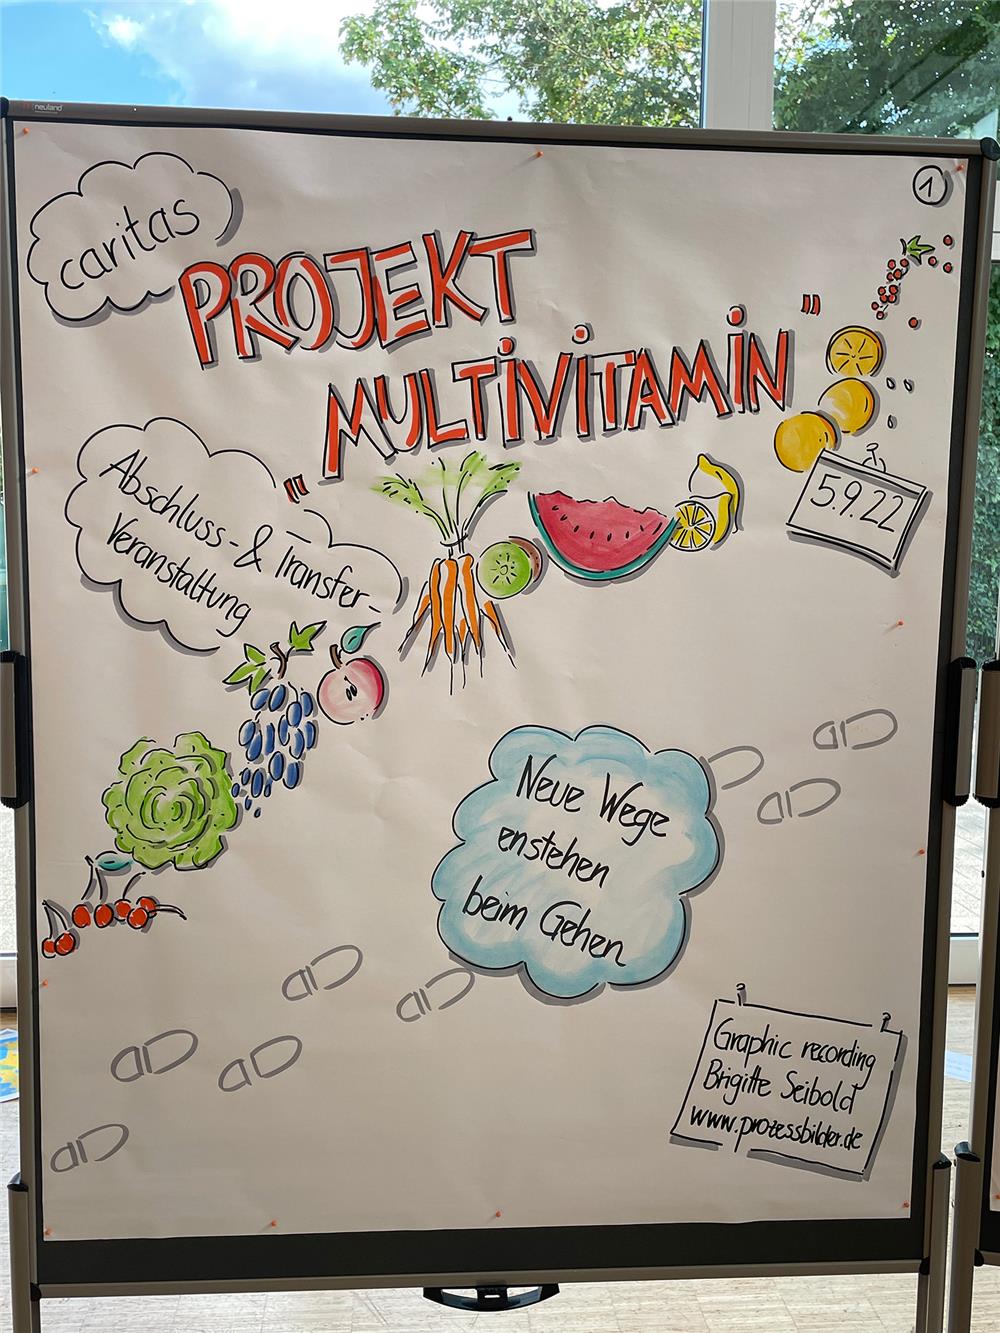 neuland
1
caritas
PROJEKT
"MULTIVITAMIN"
Abschluss- & Transfer-
Veranstaltung
5.9.22
Neue Wege
enstehen
beim Gehen
Graphic recording
Brigitte Seibold
www.prozessbilder.de